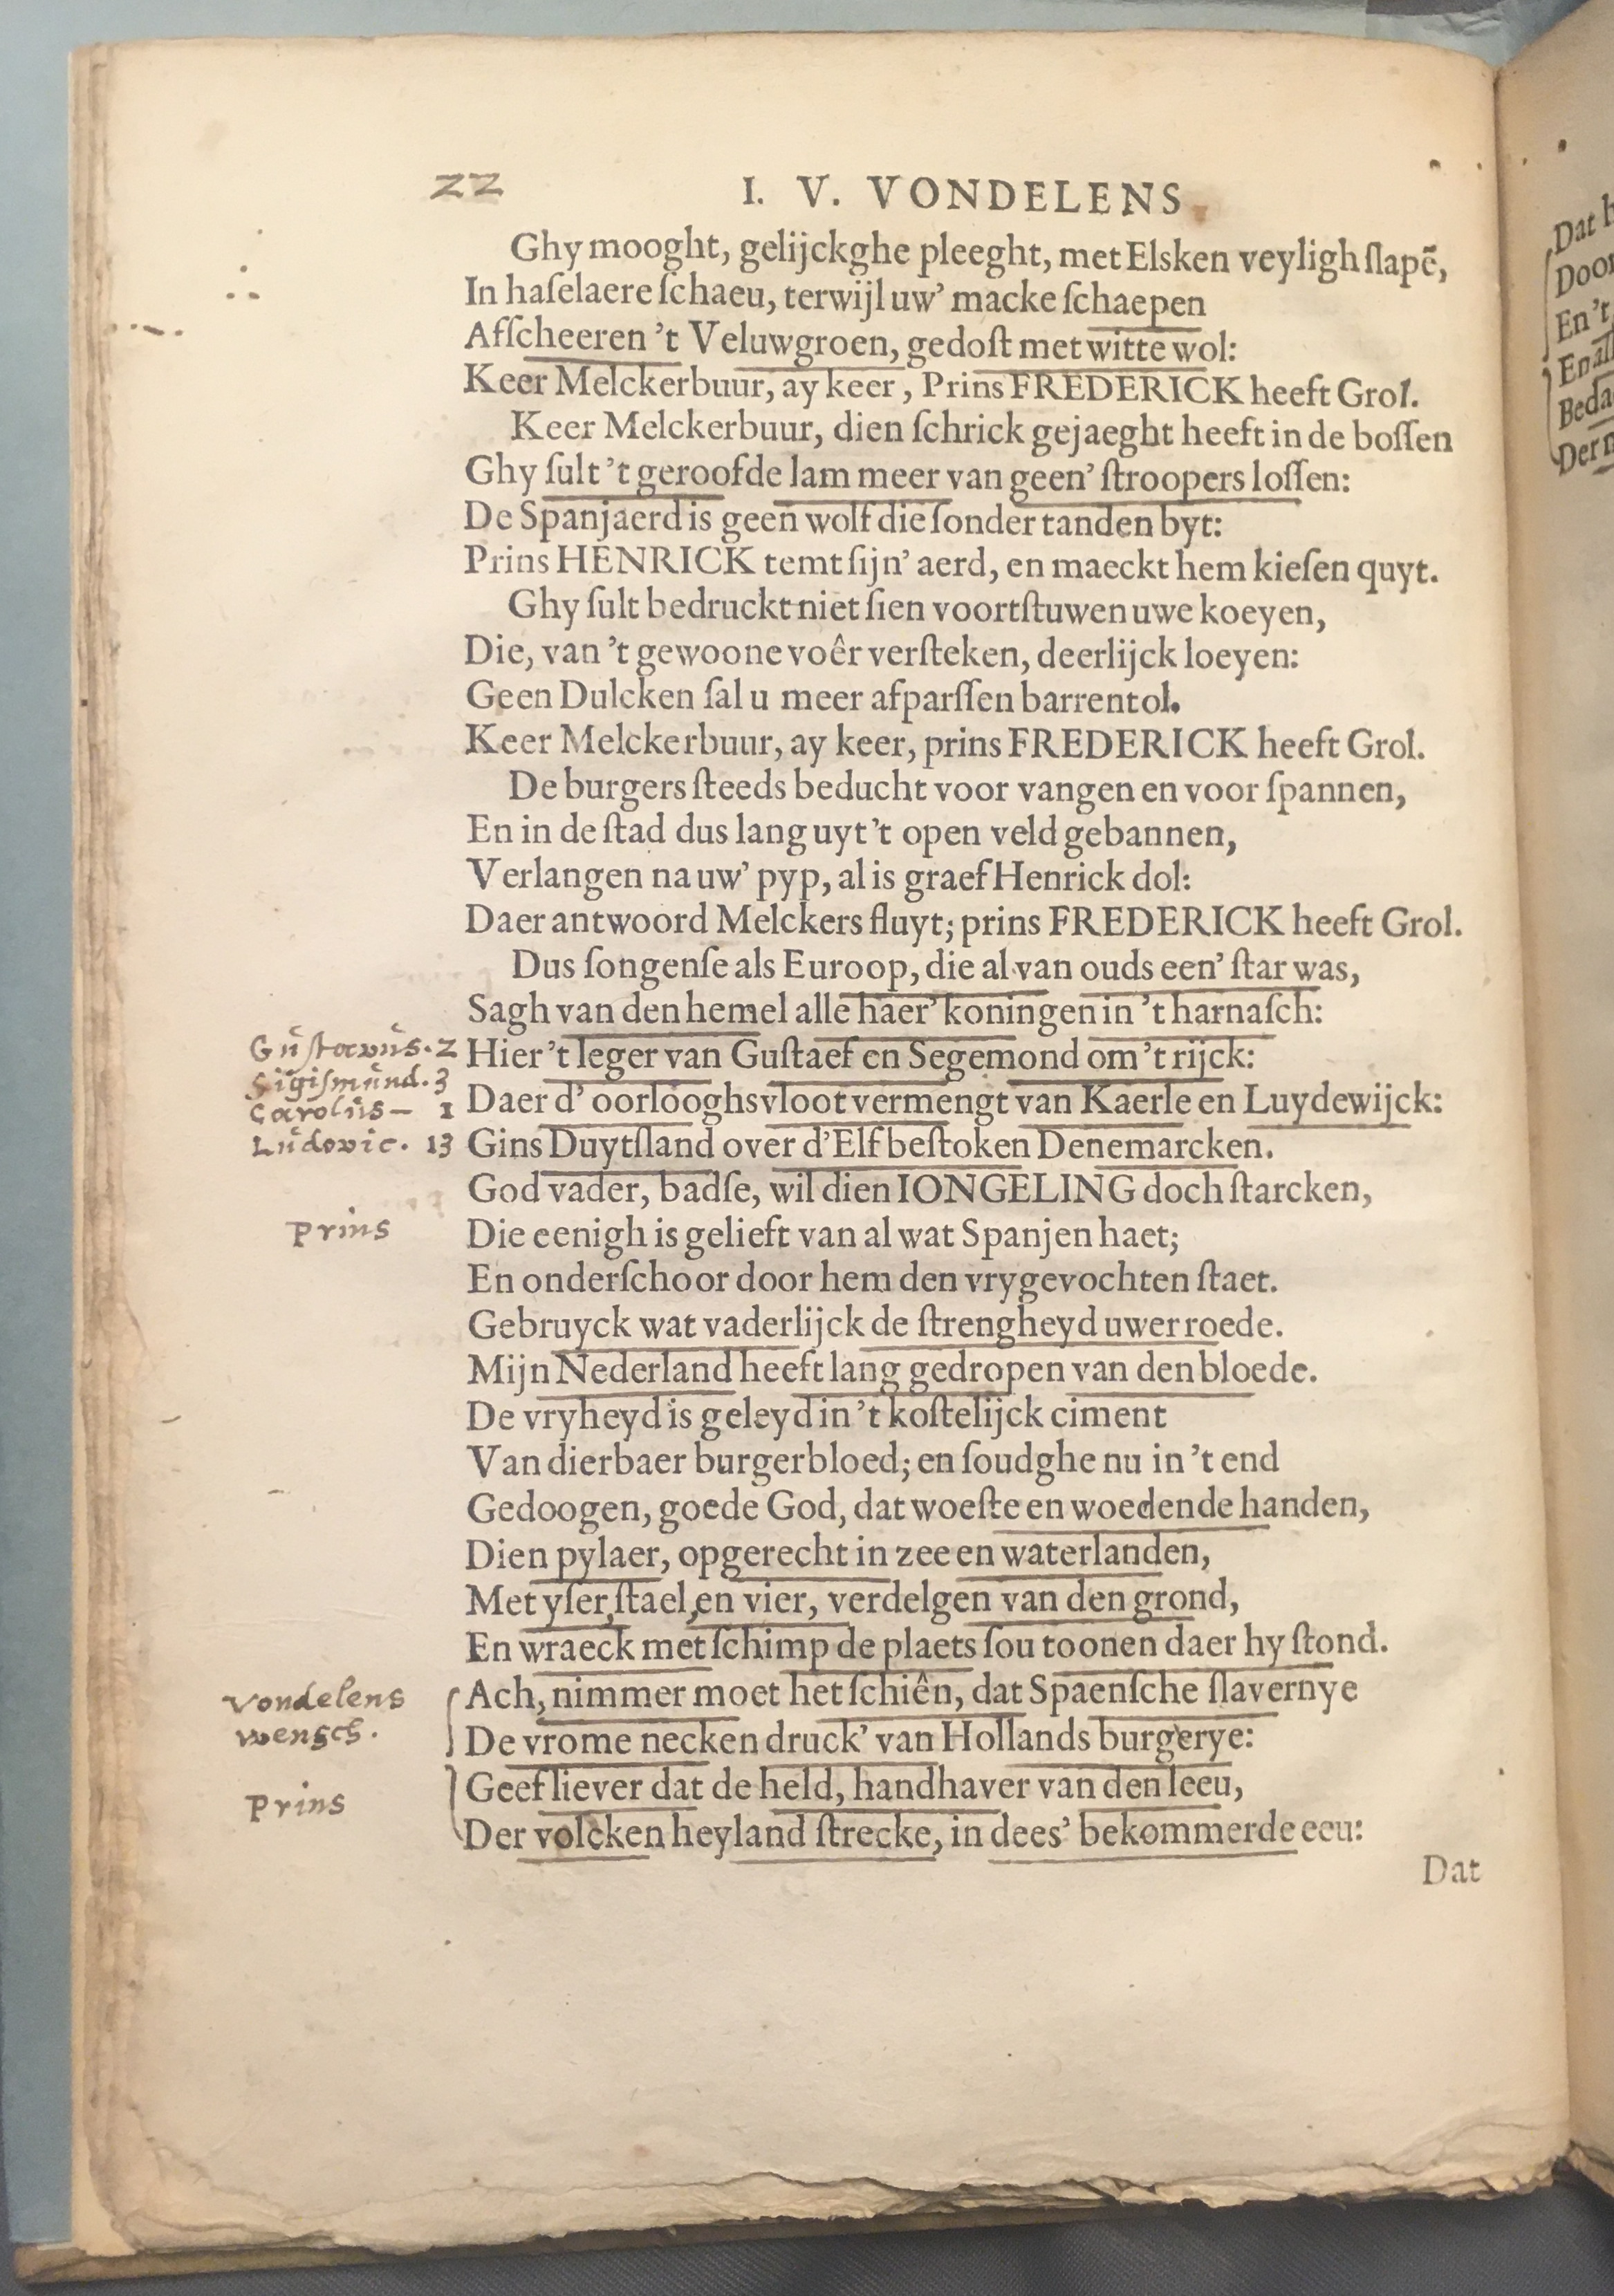 22
I. V. VONDELENS
Ghy mooght, gelijckghe pleeght, met Elsken veyligh ſlapẽ,
In haſelaere ſchaeu, terwijl uw' macke ſchaepen
Afſcheeren 't Veluwgroen, gedoſt met witte wol:
Keer Melckerbuur, ay keer, Prins FREDERICK heeft Grol.
Keer Melckerbuur, dien ſchrick gejaeght heeft in de boſſen
Ghy ſult 't geroofde lam meer van geen' ſtroopers loſſen:
De Spanjaerd is geen wolf die ſonder tanden byt:
Prins HENRICK temt ſijn' aerd, en maeckt hem kieſen quyt.
Ghy ſult bedruckt niet ſien voortſtuwen uwe koeyen,
Die, van 't gewoone voêr verſteken, deerlijck loeyen:
Geen Dulcken ſal u meer afparſſen barrentol.
Keer Melckerbuur, ay keer, prins FREDERICK heeft Grol.
De burgers ſteeds beducht voor vangen en voor ſpannen,
En in de ſtad dus lang uyt 't open veld gebannen,
Verlangen na uw' pyp, al is graef Henrick dol:
Daer antwoord Melckers fluyt; prins FREDERICK heeft Grol.
Dus ſongenſe als Euroop, die al van ouds een' ſtar was,
Sagh van den hemel alle haer' koningen in 't harnaſch:
Guſtavus. 2 Hier 't leger van Guſtaef en Segemond om 't rijck:
Sigiſmund. 3
Carolus — 1 Daer d' oorlooghsvloot vermengt van Kaerle en Luydewijck:
Ludovic. 13 Gins Duytſland over d'Elf beſtoken Denemarcken.
God vader, badſe, wil dien IONGELING doch ſtarcken,
Prins Die eenigh is gelieft van al wat Spanjen haet;
En onderſchoor door hem den vrygevochten ſtaet.
Gebruyck wat vaderlijck de ſtrengheyd uwer roede.
Mijn Nederland heeft lang gedropen van den bloede.
De vryheyd is geleyd in 't koſtelijck ciment
Van dierbaer burgerbloed; en ſoudghe nu in 't end
Gedoogen, goede God, dat woeſte en woedende handen,
Dien pylaer, opgerecht in zee en waterlanden,
Met yſer, ſtael, en vier, verdelgen van den grond,
En wraeck met ſchimp de plaets ſou toonen daer hy ſtond.
Vondelens Ach, nimmer moet het ſchiên, dat Spaenſche ſlavernye
wensch. De vrome necken druck' van Hollands burgerye:
Prins Geef liever dat de held, handhaver van den leeu,
Der volcken heyland ſtrecke, in dees' bekommerde eeu:
Dat
Dat
Door
En 't
En al
Beda
Der